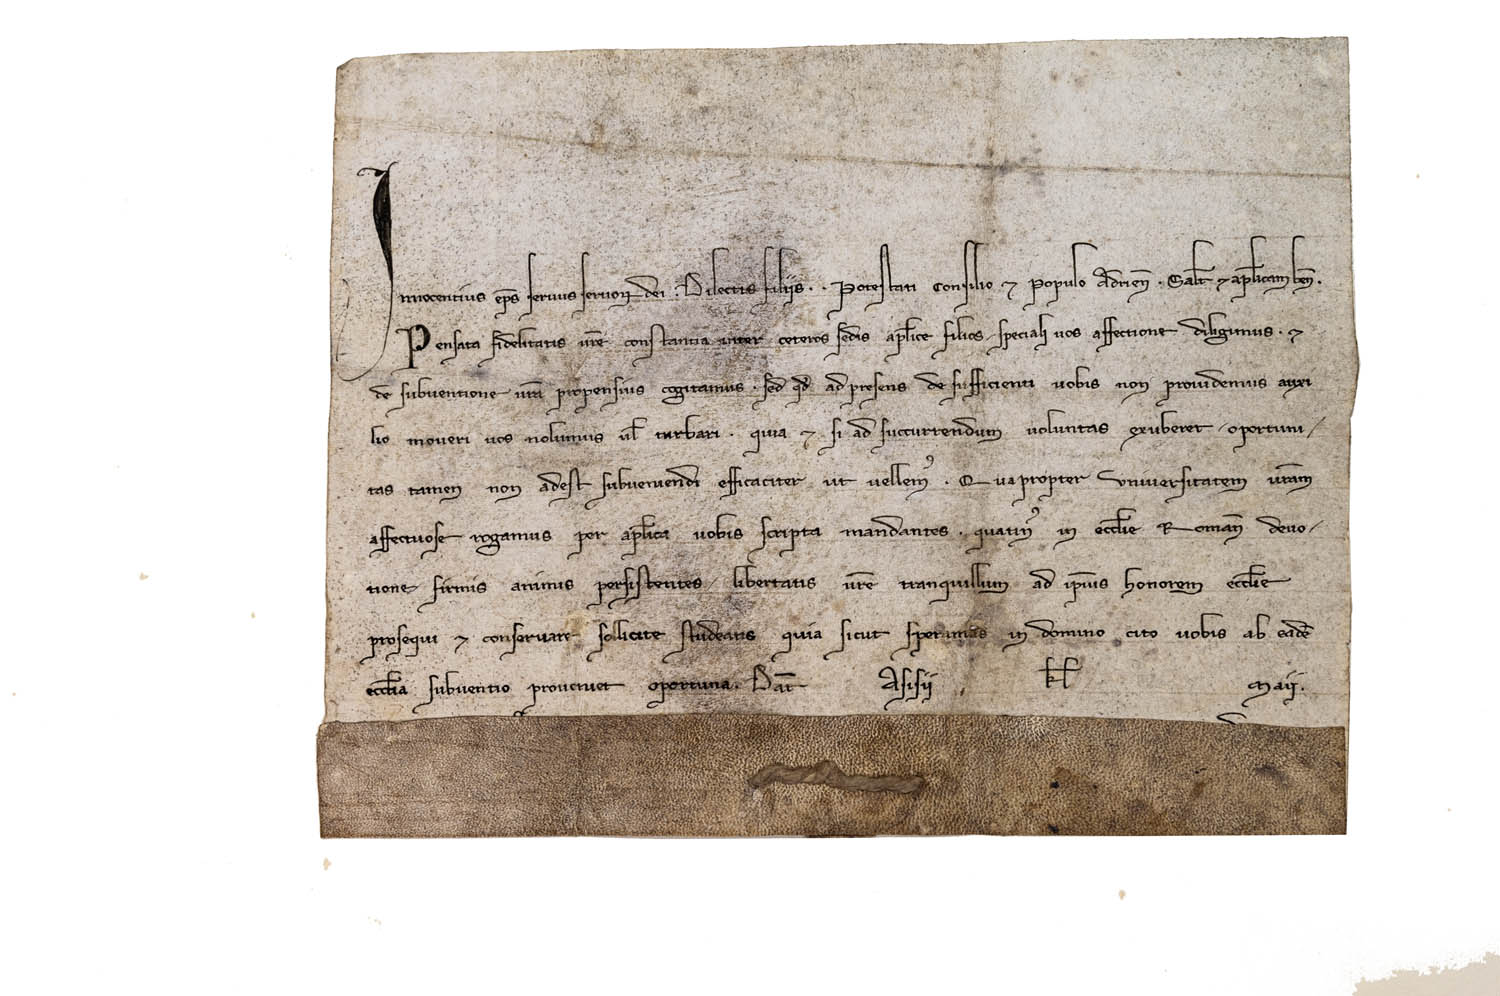 Innocentius eps̄ servus servoꝝ dei. Dilectis filiis. . Potestati Consilio ⁊ Populo Adrien̄. Salt̄ ⁊ apl̄icam ben̄.
Pensata fidelitatis vr̄e constantia inter ceteros sedis apl̄ice filios speciali vos affectione diligimus. ⁊
de subventione vr̄a propensius cogitamus. sed qd̄ ad presens de sufficienti vobis non providemus auxi
lio moveri vos nolumus vl̄ turbari. quia ⁊ si ad succurrendum voluntas exuberet oportuni/
tas tamen non adest subveniendi efficaciter ut vellemꝰ. Quapropter Universitatem vr̄am
affectuose rogamus per apl̄ica vobis scripta mandantes. quatinꝰ in eccl̄ie Roman̄ devo/
tione firmis animis persistentes libertatis vr̄e tranquillum ad ipsius honorem eccl̄ie
prosequi ⁊ conservare sollicite studeatis quia sicut speramus in domino cito vobis ab eadē
eccl̄ia subventio proveniet oportuna. Dat̄ Asisii kl̄ Maii.